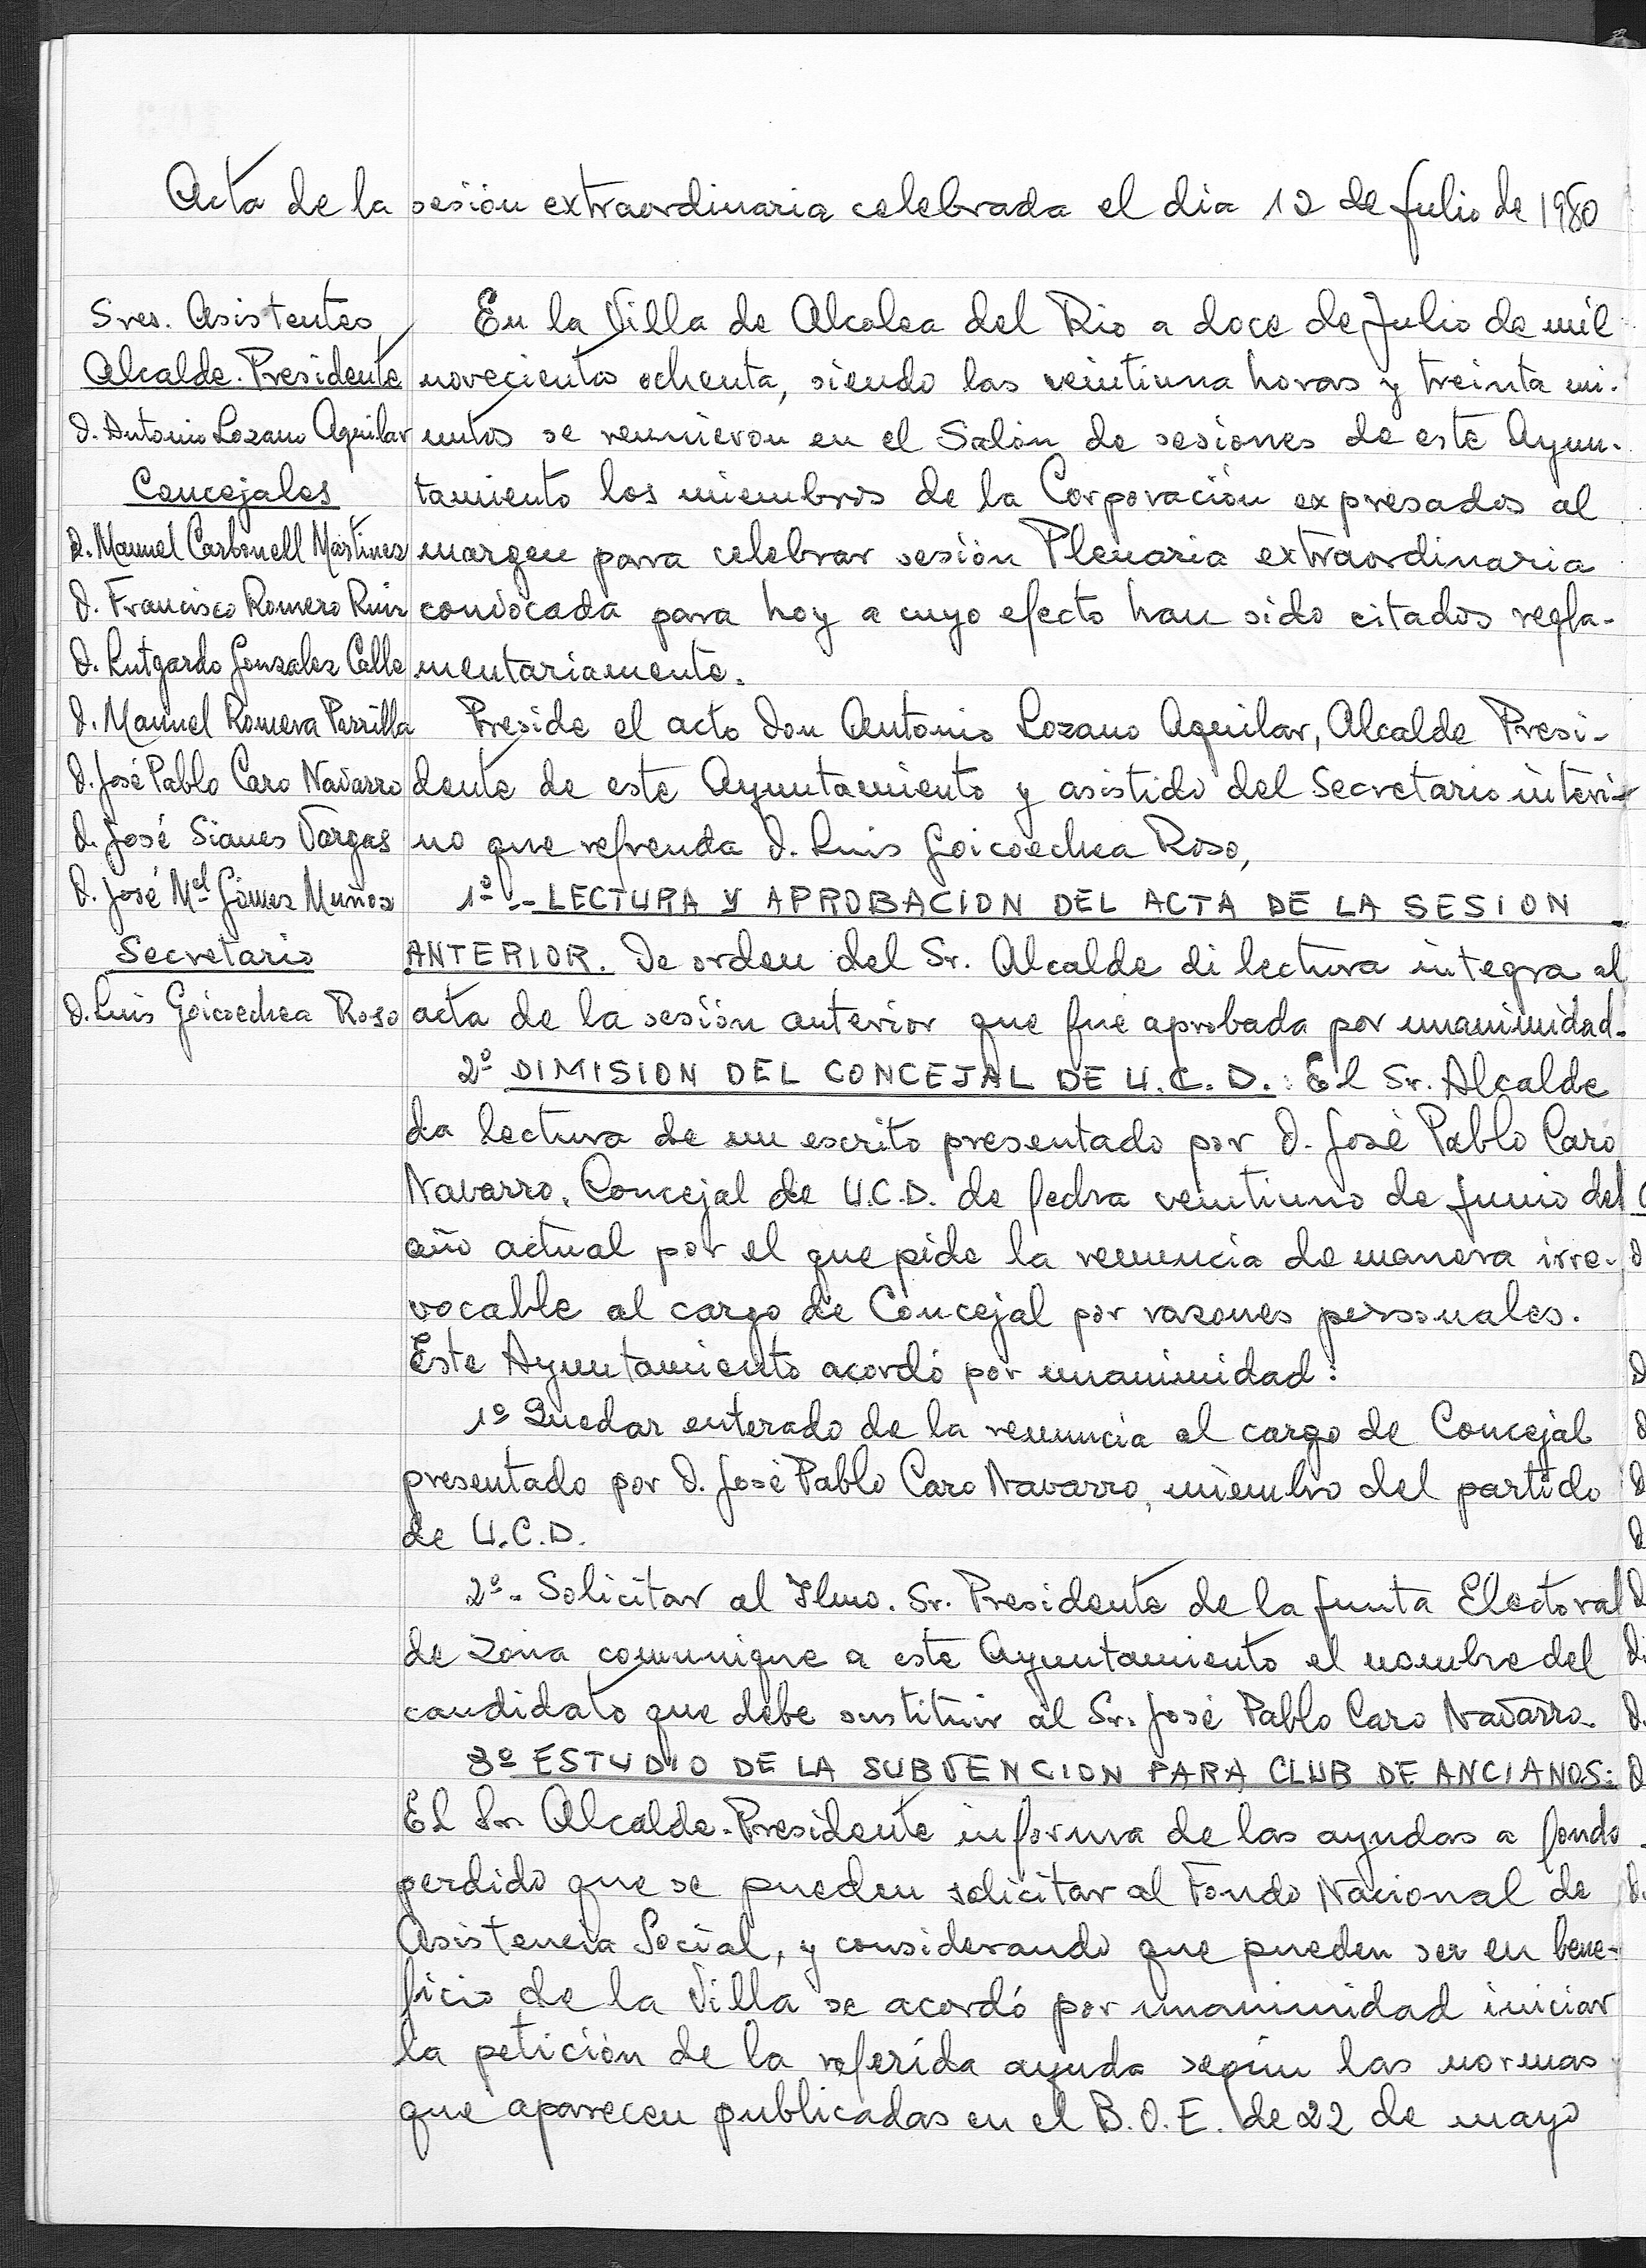 Acta de la sesión extraordinaria celebrada el dia 12 de Julio de 1980
Sres. Asistentes
Alcalde-Presidente
D. Antonio Lozano Aguilar
Concejales
D. Manuel Carbonell Martinez
D. Francisco Romero Ruiz
D. Lutgardo Gonzalez Calle
D. Manuel Romera Perrilla
D. José Pablo Caro Navarro
D. José Sianes Vargas
D. José Mel Gómez Muñoz
Secretario
D. Luis Goicoechea Roso
En la Villa de Alcolea del Rio a doce de Julio de mil
novecientos ochenta, siendo las veintiuna horas y treinta mi-
nutos se reunieron en el Salón de sesiones de este Ayun-
tamiento los miembros de la Corporación expresados al
margen para celebrar sesión Plenaria extraordinaria
convocada para hoy a cuyo efecto han sido citados regla-
mentariamente.
Preside el acto Don Antonio Lozano Aguilar, Alcalde Presi-
dente de este Ayuntamiento y asistido del Secretario interi-
no que refrenda D. Luis Goicoechea Roso,
1º.- LECTURA Y APROBACION DEL ACTA DE LA SESION
ANTERIOR. De orden del Sr. Alcalde di lectura integra al
acta de la sesión anterior que fue aprobada por unanimidad.
2º DIMISION DEL CONCEJAL DE U.C.D.: El Sr. Alcalde
da lectura de un escrito presentado por D. José Pablo Caro
Navarro, Concejal de U.C.D. de fecha veintiuno de Junio del
año actual por el que pide la renuncia de manera irre-
vocable al cargo de Concejal por razones personales.
Este Ayuntamiento acordó por unanimidad:
1º Quedar enterado de la renuncia al cargo de Concejal
presentado por D. José Pablo Caro Navarro, miembro del partido
de U.C.D.
2º.- Solicitar al Ilmo. Sr. Presidente de la Junta Electoral
de Zona comunique a este Ayuntamiento el nombre del
candidato que debe sustituir al Sr. José Pablo Caro Navarro.
3º ESTUDIO DE LA SUBVENCION PARA CLUB DE ANCIANOS:
El Sr. Alcalde-Presidente informa de las ayudas a fondo
perdido que se pueden solicitar al Fondo Nacional de
Asistencia Social, y considerando que pueden ser en bene-
ficio de la Villa se acordó por unanimidad iniciar
la petición de la referida ayuda según las normas
que aparecen publicadas en el B.O.E. de 22 de mayo